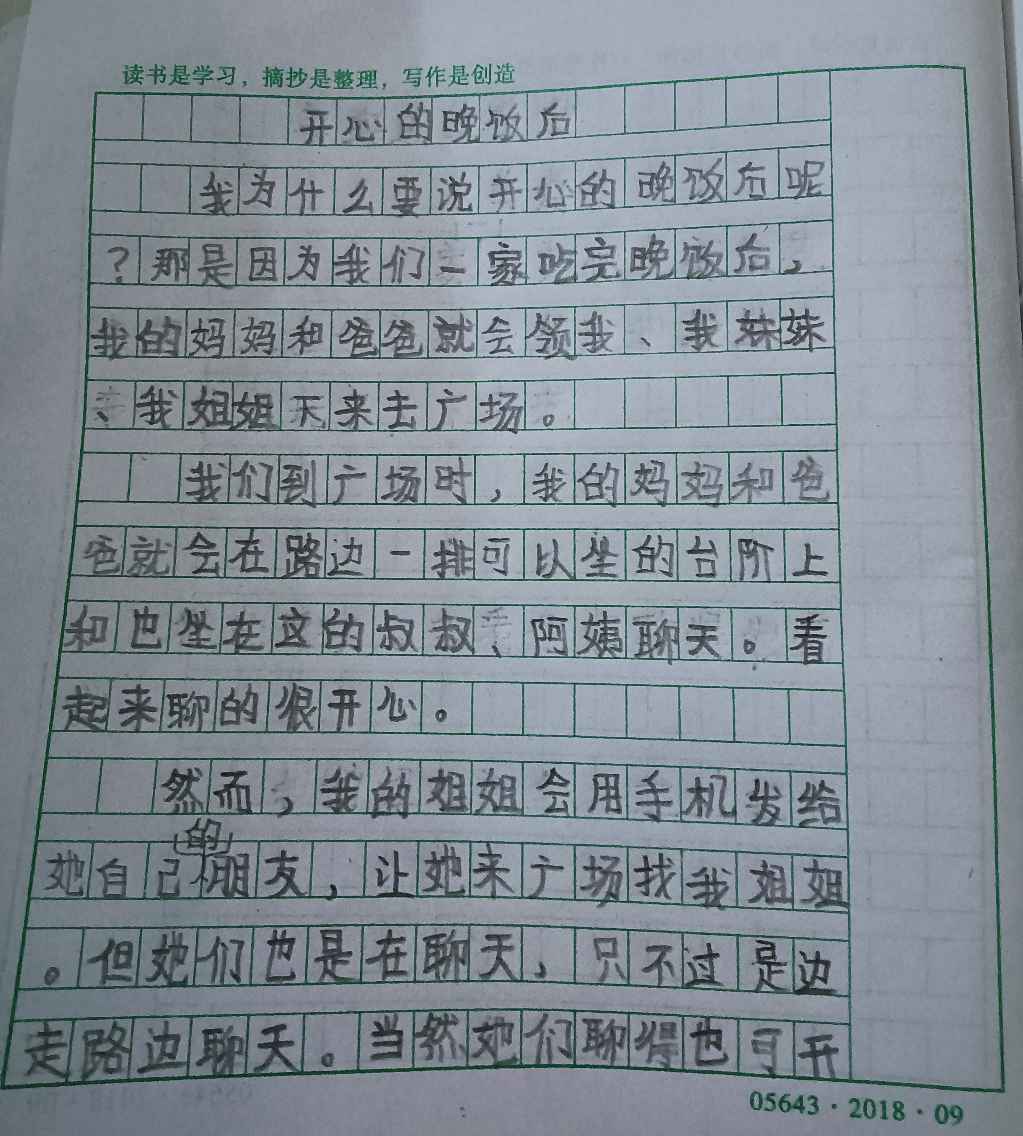 读书是学习，摘抄是整理，写作是创造
开心的晚饭后
我为什么要说开心的晚饭后呢
？那是因为我们一家吃完晚饭后，
我的妈妈和爸爸就会领我、我妹妹
、我姐姐天来去广场。
我们到广场时，我的妈妈和爸
爸就会在路边一排可以坐的台阶上
和也坐在这的叔叔、阿姨聊天。看
起来聊的很开心。
然而，我的姐姐会用手机发给
她自己的朋友，让她来广场找我姐姐
。但她们也是在聊天，只不过是边
走路边聊天。当然她们聊得也可开
05643·2018·09